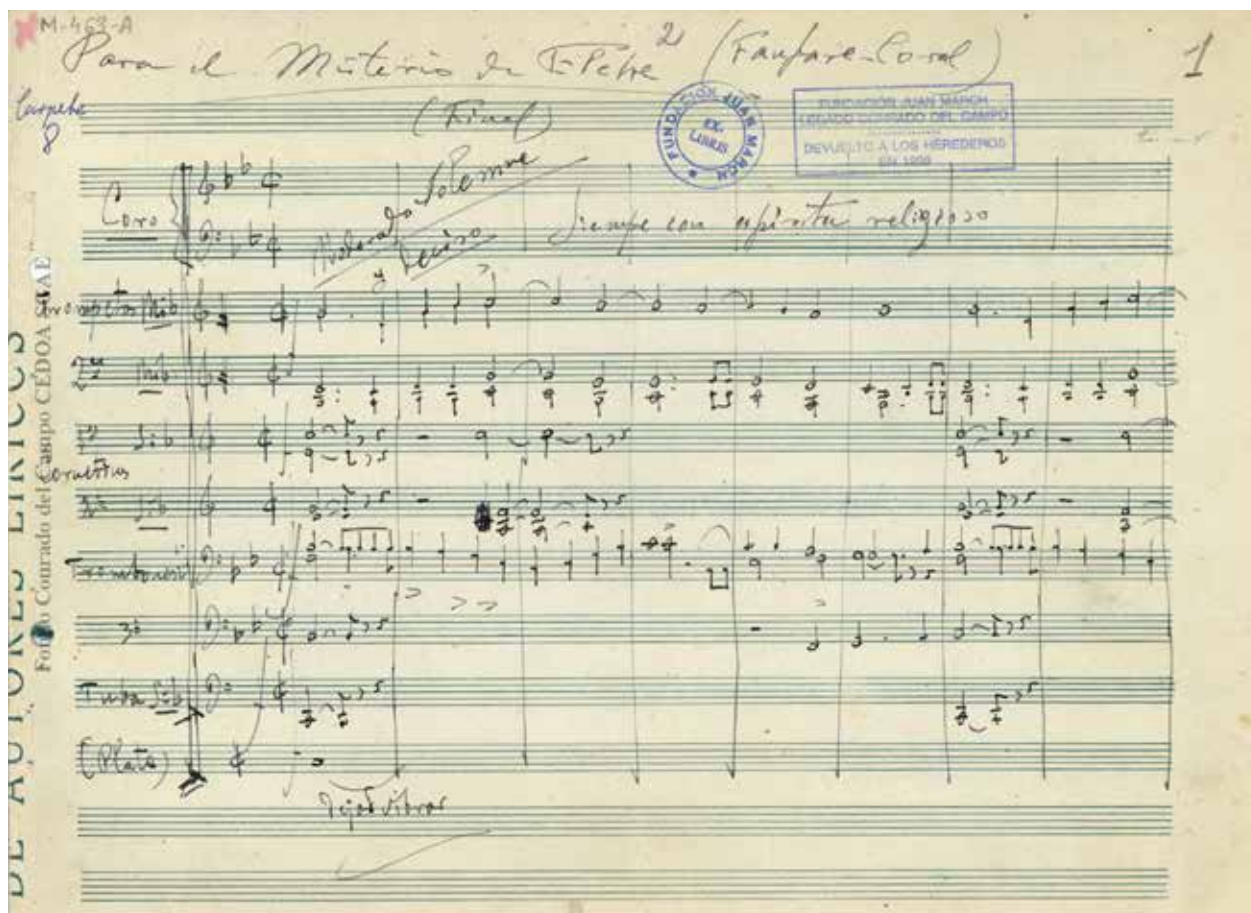 M-463-A
Para el Misterio de Elche 2 (Fanfare-Coral)
1
Carpeta
8
(Final)
FUNDACIÓN JUAN MARCH
EX-LIBRIS
FUNDACIÓN JUAN MARCH
LEGADO CONRADO DEL CAMPO
DEVUELTO A LOS HEREDEROS
EN 1999
Moderado Solemne
y Deciso
Siempre con espíritu religioso
Coro
Trompetas Mib
Mib
Sib
Cornetines
Sib
Trombones
3º
Tuba Sib
(Plato)
Dejad vibrar
DE AUTORES LIRICOS
Fondo Conrado del Campo CEDOA SGAE